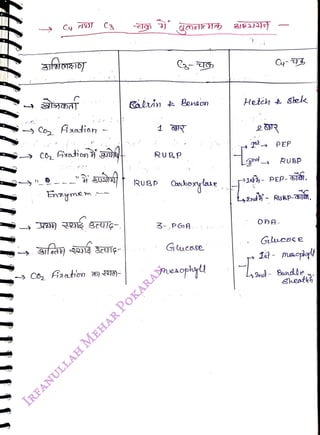 → C4 तथा C3 -चक्र में तुलनात्मक अध्ययन —
अभिलक्षण C3- चक्र C4-चक्र
→ खोजकर्ता Calvin & Benson Hetch & Slek
→ CO2 Fixation - 1 बार 2 बार
→ CO2 Fixation में उपयोगी RUBP 1st → PEP
2nd → RUBP
→ " में उपयोगी RUBP Carboxylase 1st में- PEP- कार्बो.
Enzyme — 2nd में- RUBP-कार्बो.
→ प्रथम स्थाई उत्पाद- 3-PGA OAA
→ अन्तिम स्थाई उत्पाद- Glucose Glucose
→ CO2 Fixation का स्थान- mesophyll 1st - mesophyll
2nd - Bundle sheath
IRFANULLAH MEHAR POKARAN